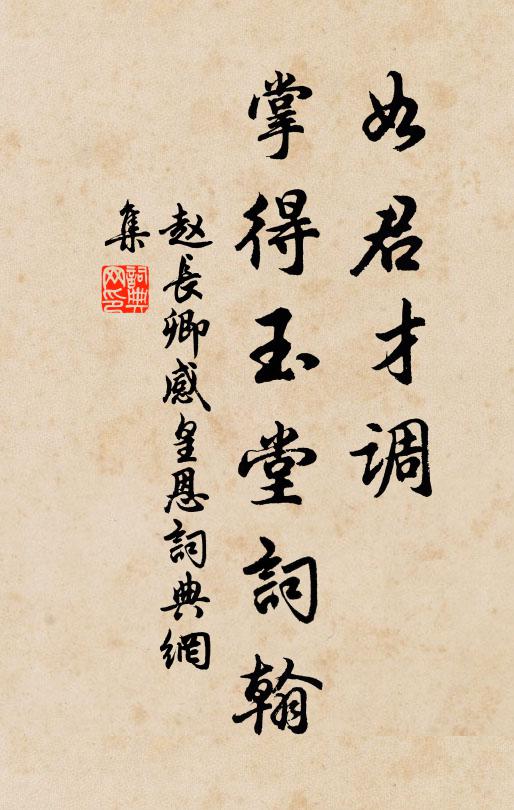 如君才調
掌得玉堂詞翰
赵長卿感皇恩詞典網
集
詞典
网印